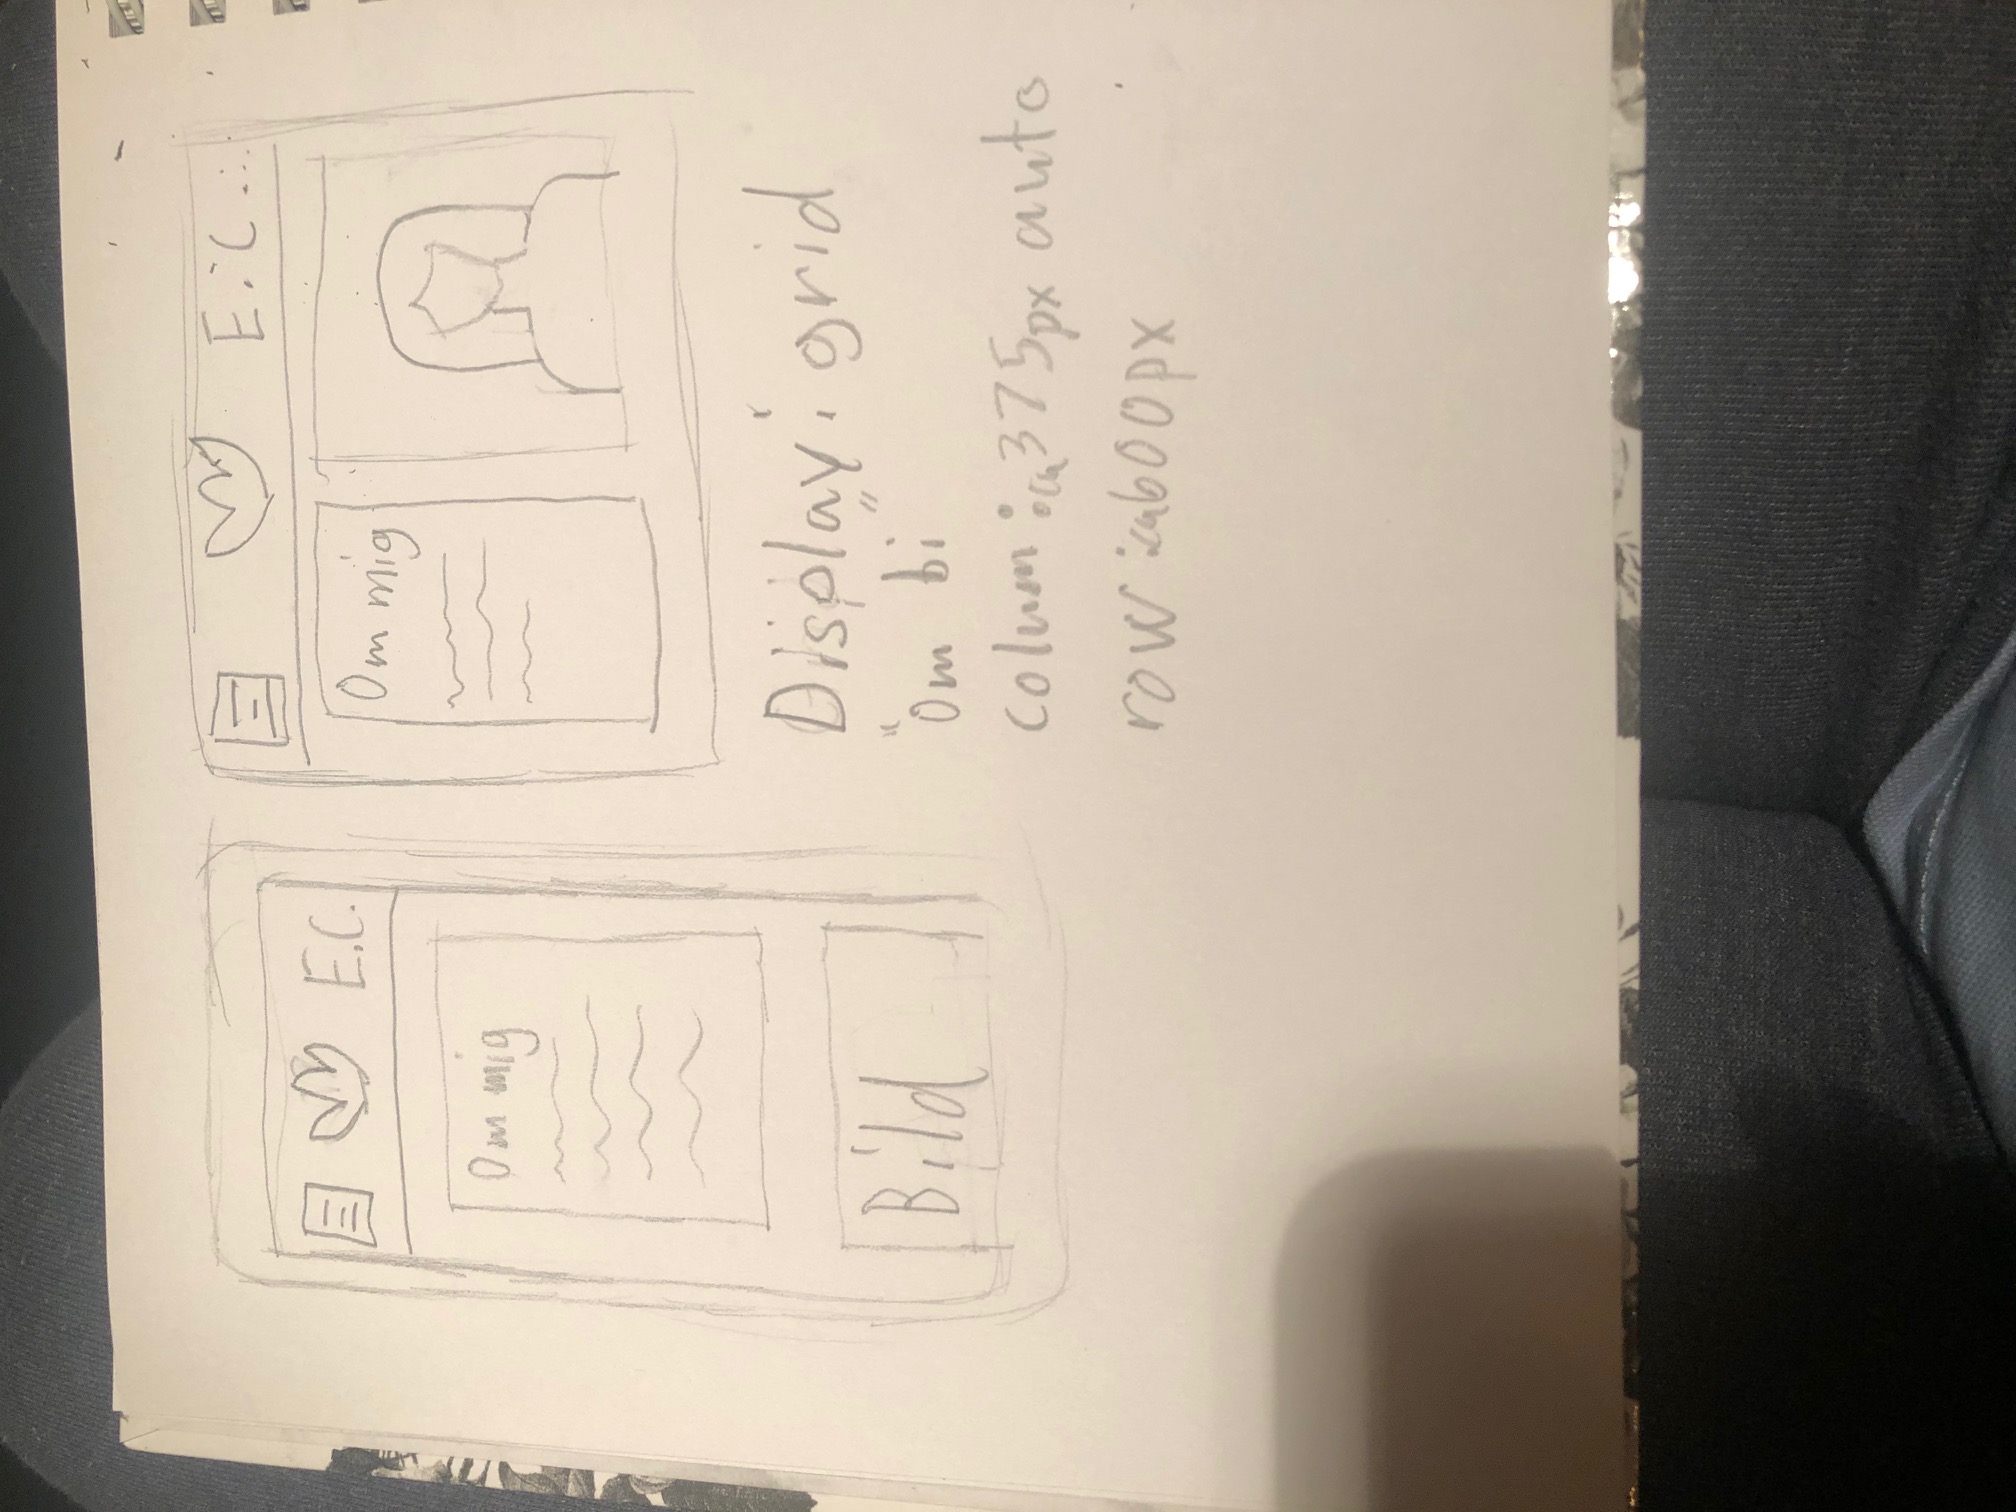 E.C.
Om mig
Bild
E.C...
Om mig
Display: grid
"Om bi"
colum: ca 375px auto
row: ca 600px